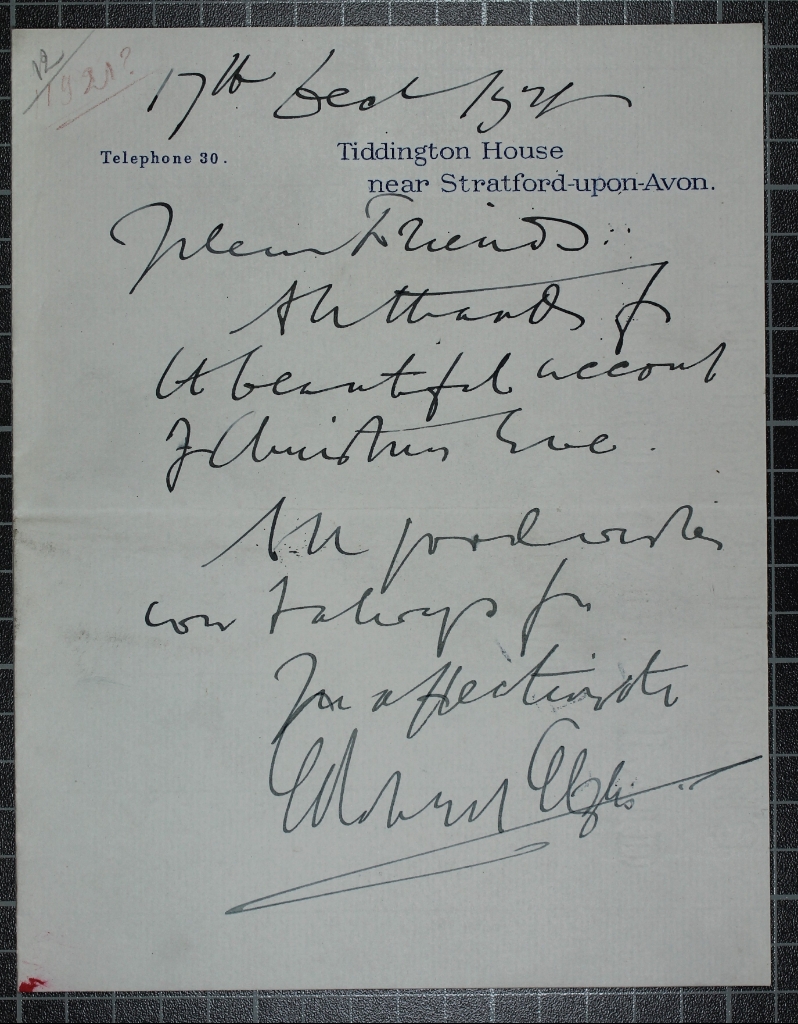 12
1921?
17th Dec 192
Telephone 30.
Tiddington House
near Stratford-upon-Avon.
My dear Friends:
All thanks for
the beautiful account
of Christmas Eve.
All good wishes
now & always fr
Yr affectionate
Edward Elgar